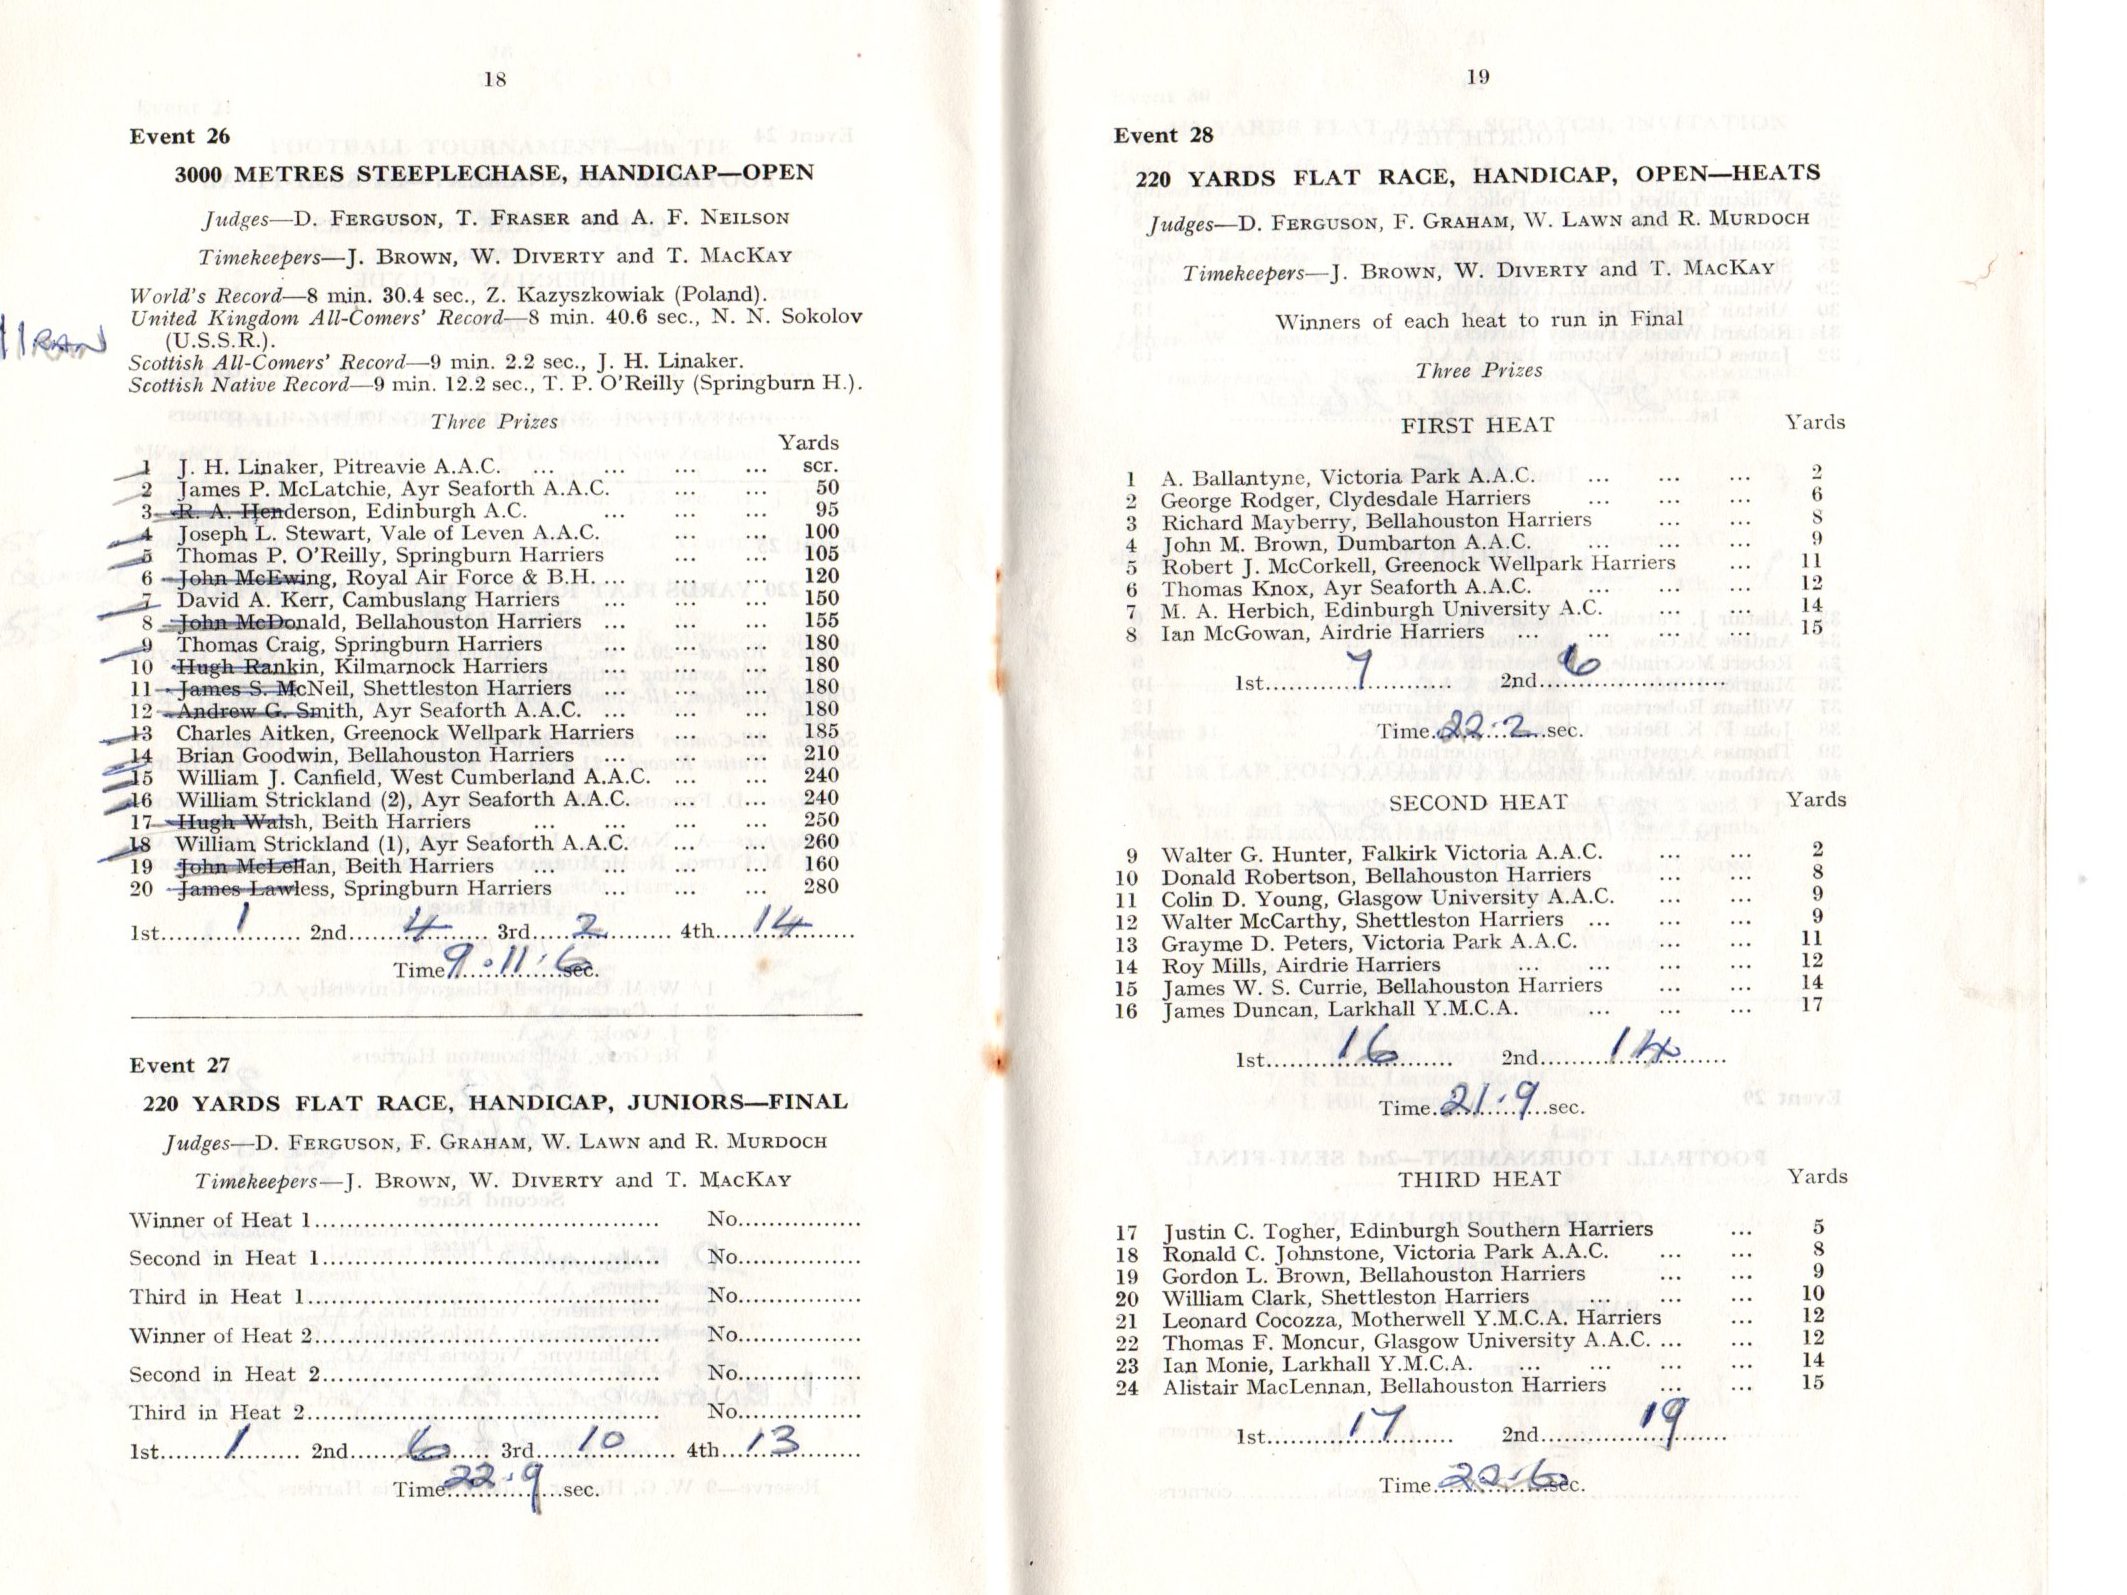 18
Event 26
3000 METRES STEEPLECHASE, HANDICAP—OPEN
Judges—D. FERGUSON, T. FRASER and A. F. NEILSON
Timekeepers—J. BROWN, W. DIVERTY and T. MACKAY
World's Record—8 min. 30.4 sec., Z. Kazyszkowiak (Poland).
United Kingdom All-Comers' Record—8 min. 40.6 sec., N. N. Sokolov
(U.S.S.R.).
11 RAN
Scottish All-Comers' Record—9 min. 2.2 sec., J. H. Linaker.
Scottish Native Record—9 min. 12.2 sec., T. P. O'Reilly (Springburn H.).
Three Prizes
Yards
1 J. H. Linaker, Pitreavie A.A.C. ... ... ... ... scr.
2 James P. McLatchie, Ayr Seaforth A.A.C. ... ... 50
3 R. A. Henderson, Edinburgh A.C. ... ... ... 95
4 Joseph L. Stewart, Vale of Leven A.A.C. ... ... 100
5 Thomas P. O'Reilly, Springburn Harriers ... ... 105
6 John McEwing, Royal Air Force & B.H. ... ... ... 120
7 David A. Kerr, Cambuslang Harriers ... ... ... 150
8 John McDonald, Bellahouston Harriers ... ... ... 155
9 Thomas Craig, Springburn Harriers ... ... ... 180
10 Hugh Rankin, Kilmarnock Harriers ... ... ... 180
11 James S. McNeil, Shettleston Harriers ... ... ... 180
12 Andrew G. Smith, Ayr Seaforth A.A.C. ... ... ... 180
13 Charles Aitken, Greenock Wellpark Harriers ... ... 185
14 Brian Goodwin, Bellahouston Harriers ... ... ... 210
15 William J. Canfield, West Cumberland A.A.C. ... ... 240
16 William Strickland (2), Ayr Seaforth A.A.C. ... ... 240
17 Hugh Walsh, Beith Harriers ... ... ... ... 250
18 William Strickland (1), Ayr Seaforth A.A.C. ... ... 260
19 John McLellan, Beith Harriers ... ... ... ... 160
20 James Lawless, Springburn Harriers ... ... ... 280
1st.....1..... 2nd.....4..... 3rd.....2..... 4th.....14.....
Time 9.11.6 sec.
Event 27
220 YARDS FLAT RACE, HANDICAP, JUNIORS—FINAL
Judges—D. FERGUSON, F. GRAHAM, W. LAWN and R. MURDOCH
Timekeepers—J. BROWN, W. DIVERTY and T. MACKAY
Winner of Heat 1.......................................... No...............
Second in Heat 1.......................................... No...............
Third in Heat 1.......................................... No...............
Winner of Heat 2.......................................... No...............
Second in Heat 2.......................................... No...............
Third in Heat 2.......................................... No...............
1st.....1..... 2nd.....6..... 3rd.....10..... 4th.....13.....
Time 22.9 sec.
19
Event 28
220 YARDS FLAT RACE, HANDICAP, OPEN—HEATS
Judges—D. FERGUSON, F. GRAHAM, W. LAWN and R. MURDOCH
Timekeepers—J. BROWN, W. DIVERTY and T. MACKAY
Winners of each heat to run in Final
Three Prizes
FIRST HEAT Yards
1 A. Ballantyne, Victoria Park A.A.C. ... ... ... 2
2 George Rodger, Clydesdale Harriers ... ... ... 6
3 Richard Mayberry, Bellahouston Harriers ... ... 8
4 John M. Brown, Dumbarton A.A.C. ... ... ... 9
5 Robert J. McCorkell, Greenock Wellpark Harriers ... 11
6 Thomas Knox, Ayr Seaforth A.A.C. ... ... ... 12
7 M. A. Herbich, Edinburgh University A.C. ... ... 14
8 Ian McGowan, Airdrie Harriers ... ... ... ... 15
1st.....7..... 2nd.....6.....
Time 22.2 sec.
SECOND HEAT Yards
9 Walter G. Hunter, Falkirk Victoria A.A.C. ... ... 2
10 Donald Robertson, Bellahouston Harriers ... ... 8
11 Colin D. Young, Glasgow University A.A.C. ... ... 9
12 Walter McCarthy, Shettleston Harriers ... ... ... 9
13 Grayme D. Peters, Victoria Park A.A.C. ... ... 11
14 Roy Mills, Airdrie Harriers ... ... ... ... 12
15 James W. S. Currie, Bellahouston Harriers ... ... 14
16 James Duncan, Larkhall Y.M.C.A. ... ... ... 17
1st.....16..... 2nd.....14.....
Time 21.9 sec.
THIRD HEAT Yards
17 Justin C. Togher, Edinburgh Southern Harriers ... 5
18 Ronald C. Johnstone, Victoria Park A.A.C. ... ... 8
19 Gordon L. Brown, Bellahouston Harriers ... ... 9
20 William Clark, Shettleston Harriers ... ... ... 10
21 Leonard Cocozza, Motherwell Y.M.C.A. Harriers ... 12
22 Thomas F. Moncur, Glasgow University A.A.C. ... ... 12
23 Ian Monie, Larkhall Y.M.C.A. ... ... ... ... 14
24 Alistair MacLennan, Bellahouston Harriers ... ... 15
1st.....17..... 2nd.....19.....
Time 22.6 sec.